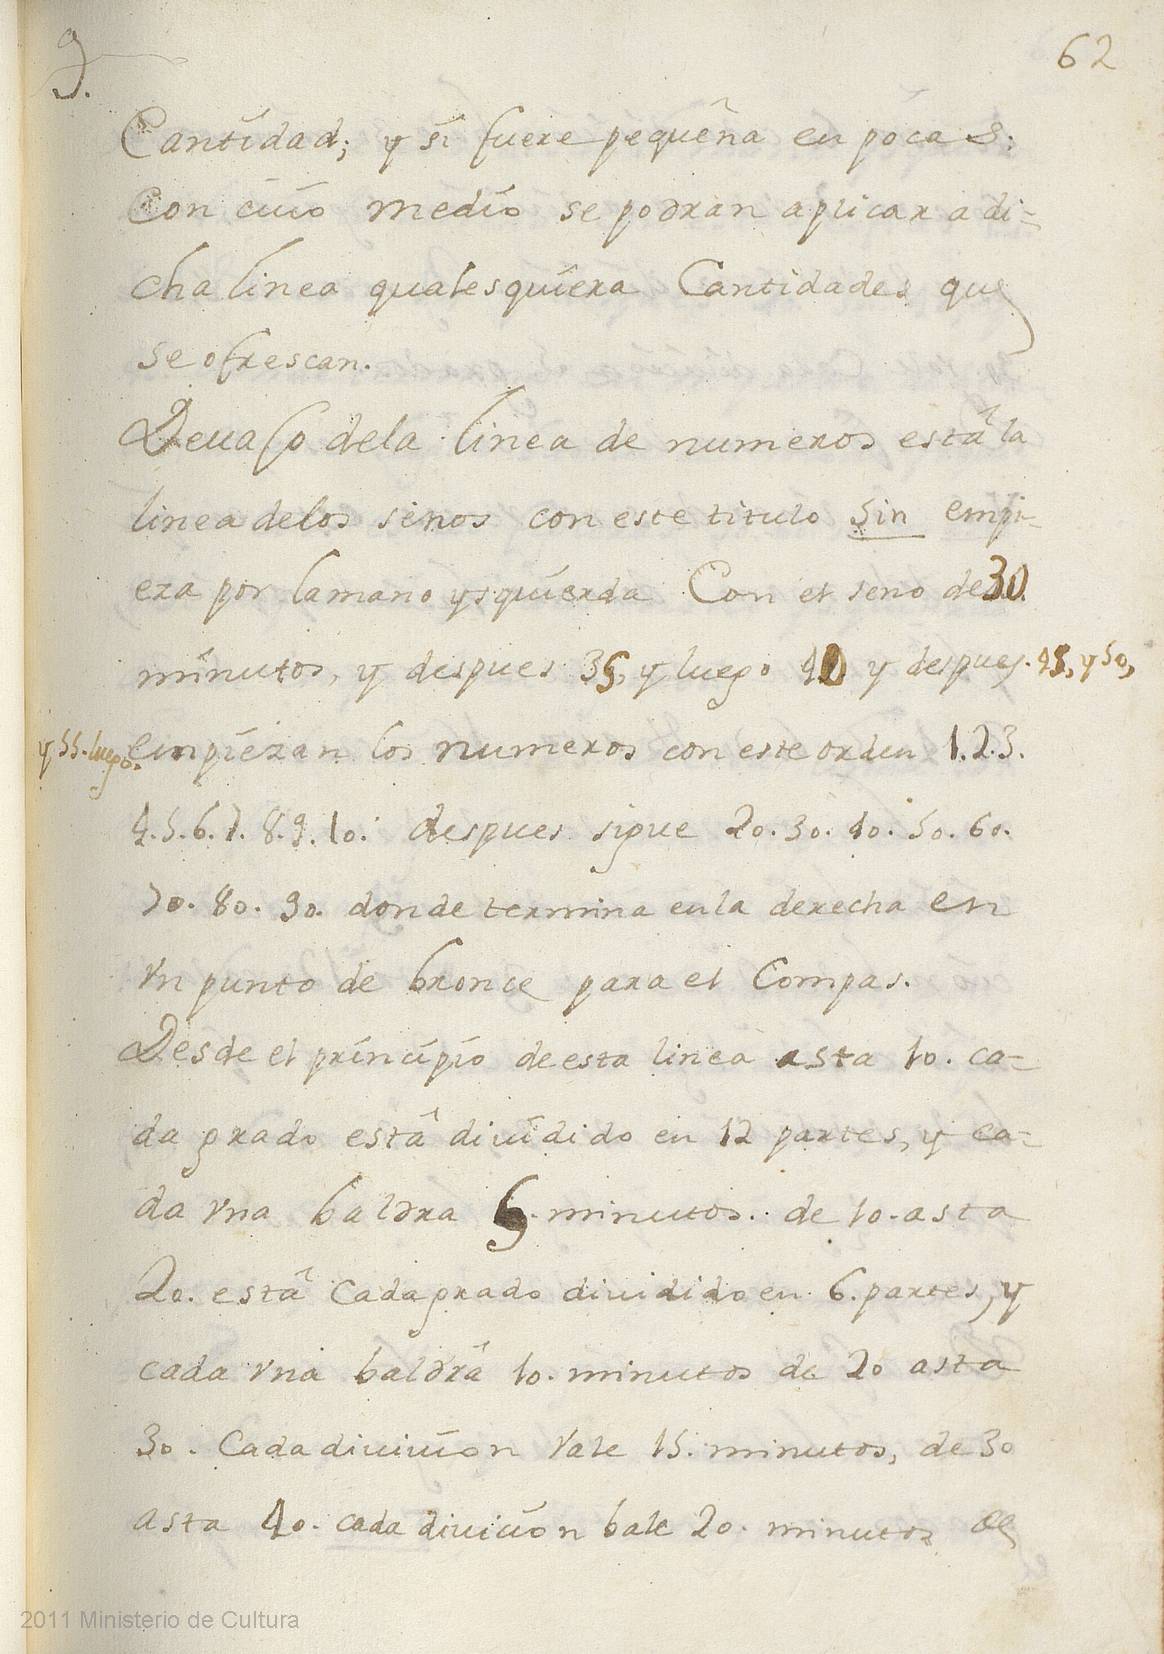 9.
62
Cantidad; y si fuere pequeña en pocas:
Con cuio medio se podran aplicar a di=
cha linea qualesquiera Cantidades que
se ofrescan.
Devaso dela linea de numeros estâ la
linea delos senos con este titulo Sin empi=
eza por la mano ysquierda Con el seno de 30
minutos, y despues 35, y luego 40 y despues. 45, y 50,
y 55. luego. empiezan los numeros con este orden 1.2.3.
4.5.6.7.8.9.10. despues sigue 20.30.40.50.60.
70.80.90. donde termina en la derecha en
vn punto de bronce para el Compas.
Desde el principio de esta linea asta 10. ca=
da grado estâ diuidido en 12 partes, y ca=
da vna baldra 5. minutos. de 10. asta
20. estâ Cada grado diuidido en 6. partes, y
cada vna baldrâ 10. minutos de 20 asta
30. Cada diuicion Vale 15. minutos, de 30
asta 40. cada diuicion bale 20. minutos de
2011 Ministerio de Cultura